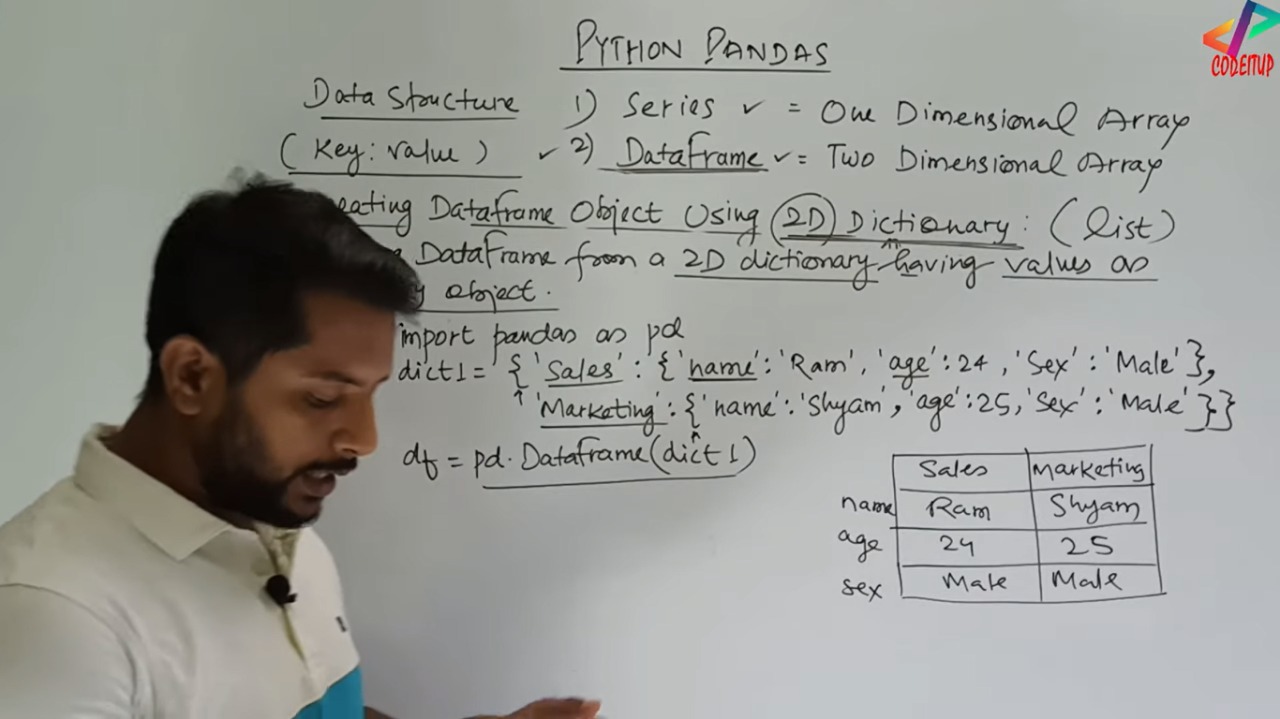 PYTHON PANDAS
CODEITUP
Data Structure 1) Series ✓ = One Dimensional Array
(Key: value) ✓ 2) DataFrame ✓ = Two Dimensional Array
eating Dataframe Object Using 2D Dictionary: (list)
DataFrame from a 2D dictionary having values as
object.
import pandas as pd
dict1 = { 'Sales' : { 'name' : 'Ram', 'age' : 24, 'Sex' : 'Male' },
'Marketing' : { 'name' : 'Shyam', 'age' : 25, 'Sex' : 'Male' }}
df = pd.Dataframe(dict1)
Sales Marketing
name Ram Shyam
age 24 25
sex Male Male